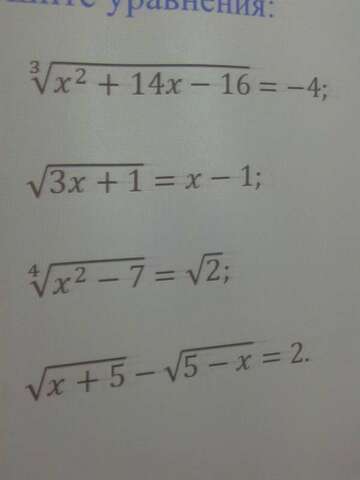 уравнения:
∛(x² + 14x − 16) = −4;
√(3x + 1) = x − 1;
∜(x² − 7) = √2;
√(x + 5) − √(5 − x) = 2.